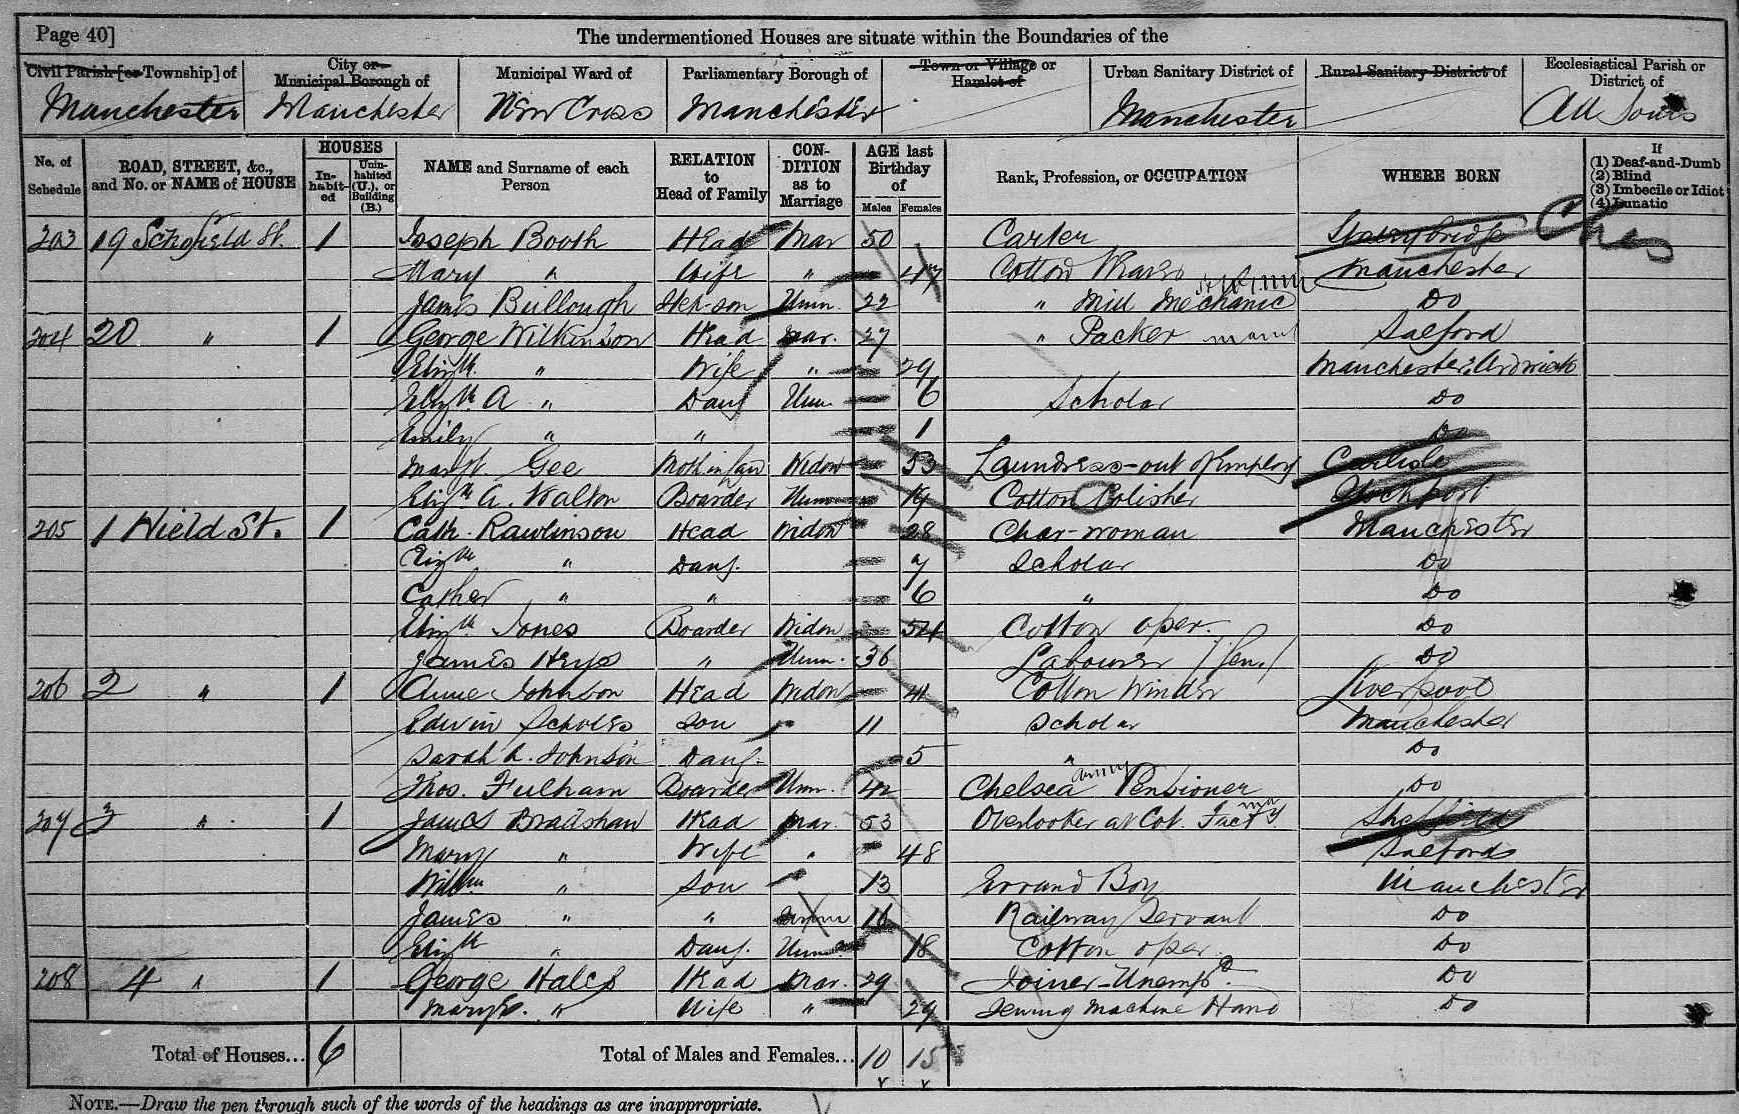 Page 40]
The undermentioned Houses are situate within the Boundaries of the
Civil Parish [or Township] of
City or Municipal Borough of
Municipal Ward of
Parliamentary Borough of
Town or Village or Hamlet of
Urban Sanitary District of
Rural Sanitary District of
Ecclesiastical Parish or District of
Manchester Manchester New Cross Manchester Manchester All Souls
No. of Schedule
ROAD, STREET, &c., and No. or NAME of HOUSE
HOUSES
In-habit-ed
Unin-habited (U.), or Building (B.)
NAME and Surname of each Person
RELATION to Head of Family
CON-DITION as to Marriage
AGE last Birthday of
Males Females
Rank, Profession, or OCCUPATION
WHERE BORN
If
(1) Deaf-and-Dumb
(2) Blind
(3) Imbecile or Idiot
(4) Lunatic
203 19 Schofield St. 1 Joseph Booth Head Mar 50 Carter Stalybridge Ches
Mary " Wife " 47 Cotton Manchester
James Bullough Step-son Unm. 22 " Mill Mechanic Do
204 20 " 1 George Wilkinson Head Mar. 27 " Packer Salford
Elizth. " Wife " 29 Manchester, Ardwick
Elizth A " Daug Unm 6 Scholar Do
Emily " " 1 Do
Margt. Gee Moth in law Widow 53 Laundress-out of Employ Carlisle
Elizth A. Walton Boarder Unm 19 Cotton Polisher Stockport
205 1 Hield St. 1 Cath. Rawlinson Head Widow 28 Char-woman Manchester
Elizth " Daug. 7 Scholar Do
Cather " " 6 " Do
Elizth Jones Boarder Widow 54 Cotton oper. Do
James Heys " Unm. 36 Labourer (Gen.) Do
206 2 " 1 Anne Johnson Head Widow 41 Cotton Winder Liverpool
Edwin Scholes Son " 11 Scholar Manchester
Sarah A. Johnson Daug. 5 " Do
Thos. Fulham Boarder Unm. 42 Chelsea Army Pensioner Do
207 3 " 1 James Bradshaw Head Mar. 53 Overlooker at Cot. Facty. Sheffield
Mary " Wife " 48 Salford
Willm " Son " 13 Errand Boy Manchester
James " " 16 Railway Servant Do
Elizth " Daug. Unm 18 Cotton oper. Do
208 4 " 1 George Hales Head Mar. 29 Joiner-Unempd. Do
Mary E. " Wife " 29 Sewing Machine Hand Do
Total of Houses... 6 Total of Males and Females... 10 15
NOTE.—Draw the pen through such of the words of the headings as are inappropriate.